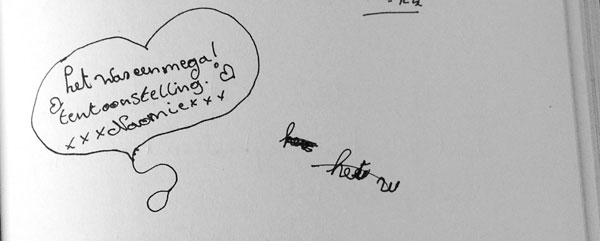 het was een mega!
tentoonstelling.
x x x Naomie x x x
het